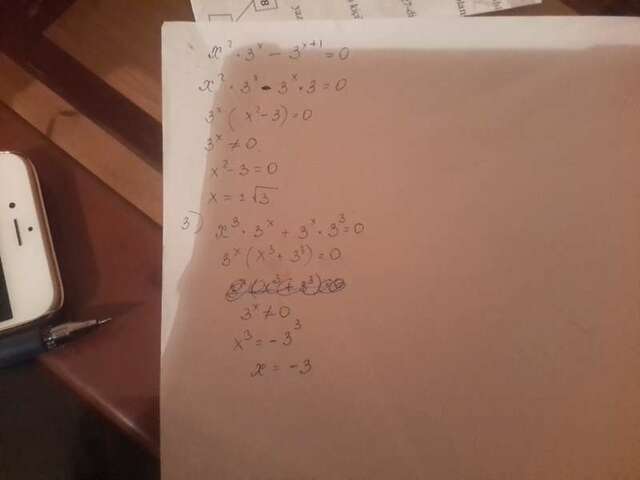 x² · 3ˣ - 3ˣ⁺¹ = 0
x² · 3ˣ - 3ˣ · 3 = 0
3ˣ ( x² - 3 ) = 0
3ˣ ≠ 0
x² - 3 = 0
x = ± √3
3) x³ · 3ˣ + 3ˣ · 3³ = 0
3ˣ ( x³ + 3³ ) = 0
3ˣ ≠ 0
x³ = - 3³
x = - 3